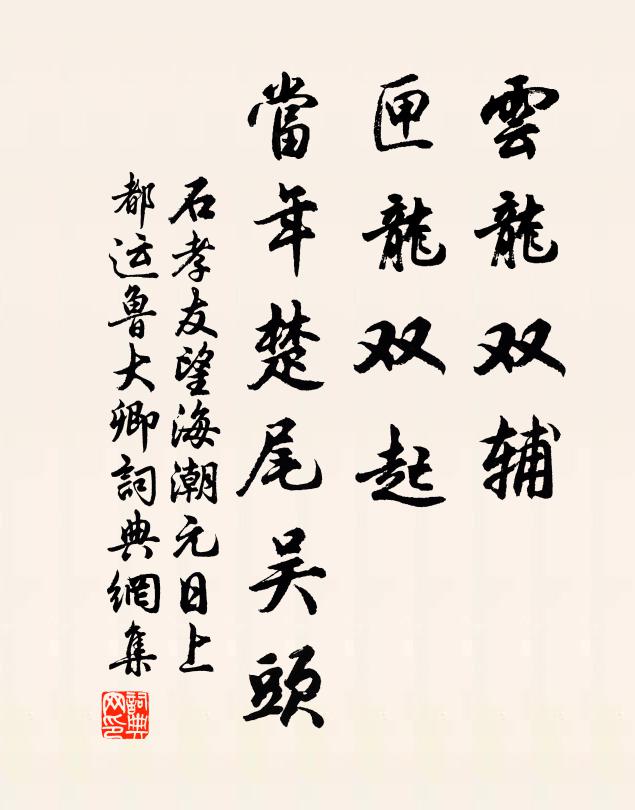 雲龍双辅
匣龍双起
當年楚尾吴頭
石孝友望海潮元日上
都运魯大卿詞典網集
詞典
网印